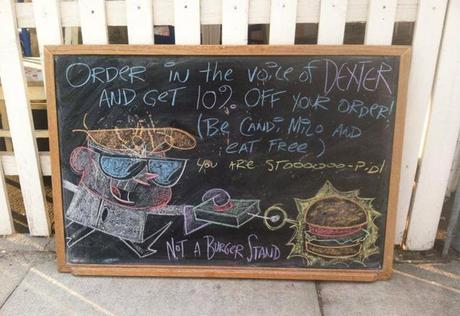 ORDER in the voice of DEXTER
AND GET 10% OFF YOUR ORDER!
(BE CANDi MILO AND
EAT FREE)
YOU ARE STOOOOOOO-PiD!
NOT A BURGER STAND